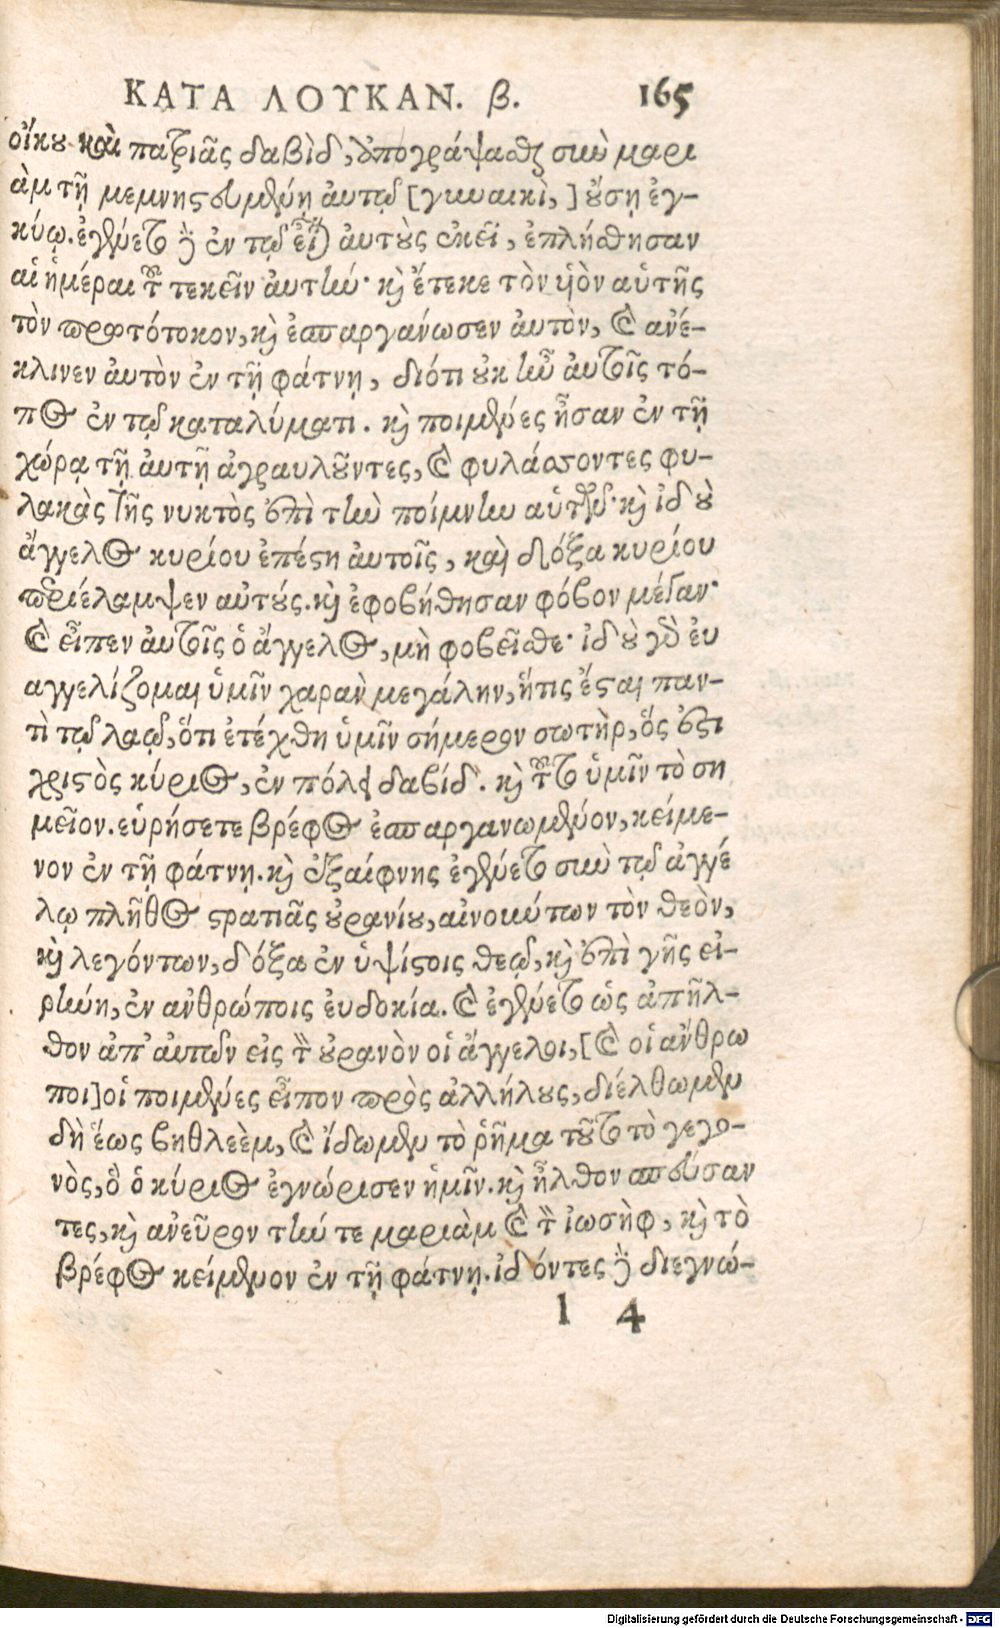 ΚΑΤΑ ΛΟΥΚΑΝ. β. 165
οἴκου καὶ πατριᾶς δαβὶδ, ἀπογράψασθαι σὺν μαρι
ὰμ τῇ μεμνηστευμένῃ ἀυτῷ [γυναικὶ,] οὔσῃ ἐγ-
κύῳ. ἐγένετο δὲ ἐν τῷ εἶναι ἀυτοὺς ἐκεῖ, ἐπλήσθησαν
αἱ ἡμέραι τοῦ τεκεῖν ἀυτήν· καὶ ἔτεκε τὸν υἱὸν αὑτῆς
τὸν πρωτότοκον, καὶ ἐσπαργάνωσεν ἀυτὸν, καὶ ἀνέ-
κλινεν ἀυτὸν ἐν τῇ φάτνῃ, διότι οὐκ ἦν ἀυτοῖς τό-
πος ἐν τῷ καταλύματι. καὶ ποιμένες ἦσαν ἐν τῇ
χώρᾳ τῇ ἀυτῇ ἀγραυλοῦντες, καὶ φυλάσσοντες φυ-
λακὰς τῆς νυκτὸς ἐπὶ τὴν ποίμνην αὑτῶν· καὶ ἰδοὺ
ἄγγελος κυρίου ἐπέστη ἀυτοῖς, καὶ δόξα κυρίου
περιέλαμψεν αὐτούς. καὶ ἐφοβήθησαν φόβον μέγαν·
καὶ εἶπεν ἀυτοῖς ὁ ἄγγελος, μὴ φοβεῖσθε· ἰδοὺ γὰρ ἐυ
αγγελίζομαι ὑμῖν χαρὰν μεγάλην, ἥτις ἔσται παν-
τὶ τῷ λαῷ, ὅτι ἐτέχθη ὑμῖν σήμερον σωτὴρ, ὅς ἐστι
χριστὸς κύριος, ἐν πόλει δαβίδ. καὶ τοῦτο ὑμῖν τὸ ση
μεῖον. εὑρήσετε βρέφος ἐσπαργανωμένον, κείμε-
νον ἐν τῇ φάτνῃ. καὶ ἐξαίφνης ἐγένετο σὺν τῷ ἀγγέ
λῳ πλῆθος στρατιᾶς οὐρανίου, αἰνούντων τὸν θεὸν,
καὶ λεγόντων, δόξα ἐν ὑψίστοις θεῷ, καὶ ἐπὶ γῆς εἰ-
ρήνη, ἐν ἀνθρώποις ἐυδοκία. καὶ ἐγένετο ὡς ἀπῆλ-
θον ἀπ' ἀυτῶν εἰς τὸν οὐρανὸν οἱ ἄγγελοι, [καὶ οἱ ἄνθρω
ποι] οἱ ποιμένες εἶπον πρὸς ἀλλήλους, διέλθωμεν
δὴ ἕως βηθλεὲμ, καὶ ἴδωμεν τὸ ῥῆμα τοῦτο τὸ γεγο-
νὸς, ὃ ὁ κύριος ἐγνώρισεν ἡμῖν. καὶ ἦλθον σπεύσαν
τες, καὶ ἀνεῦρον τήν τε μαριὰμ καὶ τὸν ἰωσὴφ, καὶ τὸ
βρέφος κείμενον ἐν τῇ φάτνῃ. ἰδόντες δὲ διεγνώ-
l 4
Digitalisierung gefördert durch die Deutsche Forschungsgemeinschaft - DFG